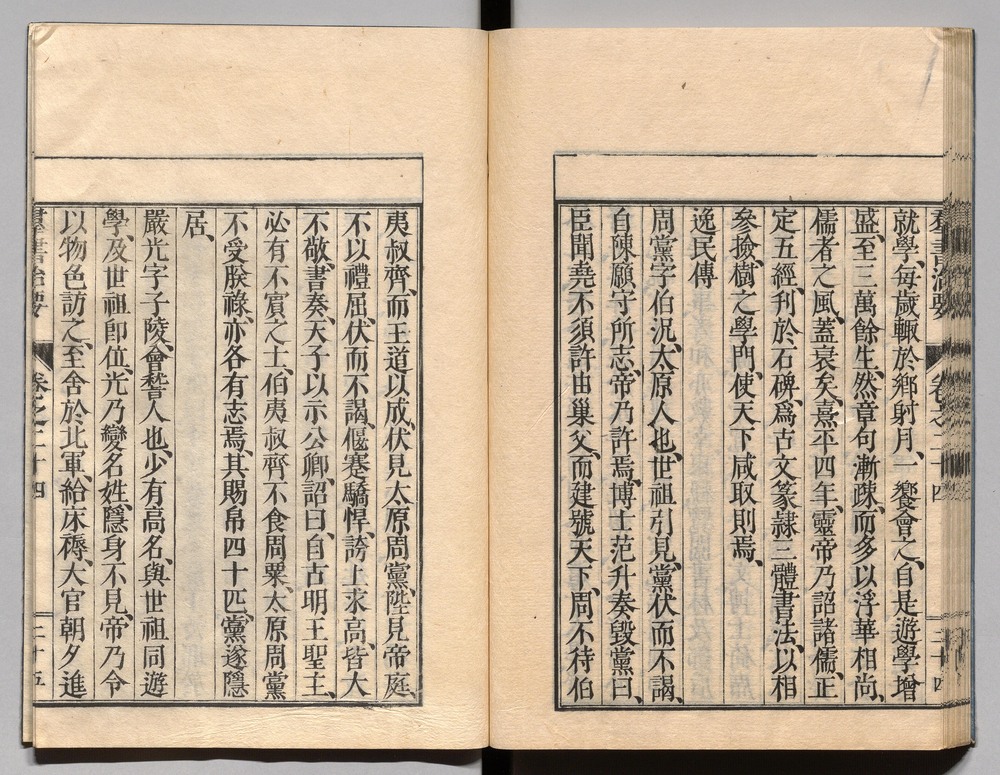 羣書治要 卷之二十四 二十四
就學、每歲輙於鄉射月、一饗會之、自是遊學增
盛、至三萬餘生、然章句漸疎、而多以浮華相尚、
儒者之風、蓋衰矣、熹平四年、靈帝乃詔諸儒、正
定五經、刋於石碑、爲古文篆隷三體書法、以相
參撿、樹之學門、使天下咸取則焉、
逸民傳
周黨字伯况、太原人也、世祖引見、黨伏而不謁、
自陳願守所志、帝乃許焉、博士范升奏毀黨曰、
臣聞堯不須許由巢父、而建號天下、周不待伯
夷叔齊、而王道以成、伏見太原周黨、陛見帝庭、
不以禮屈、伏而不謁、偃蹇驕悍、誇上求高、皆大
不敬、書奏、天子以示公卿、詔曰、自古明王聖主、
必有不賓之士、伯夷叔齊不食周粟、太原周黨
不受朕祿、亦各有志焉、其賜帛四十匹、黨遂隱
居、
嚴光字子陵、會稽人也、少有高名、與世祖同遊
學、及世祖卽位、光乃變名姓、隱身不見、帝乃令
以物色訪之、至舍於北軍、給床褥、大官朝夕進
羣書治要 卷之二十四 二十五